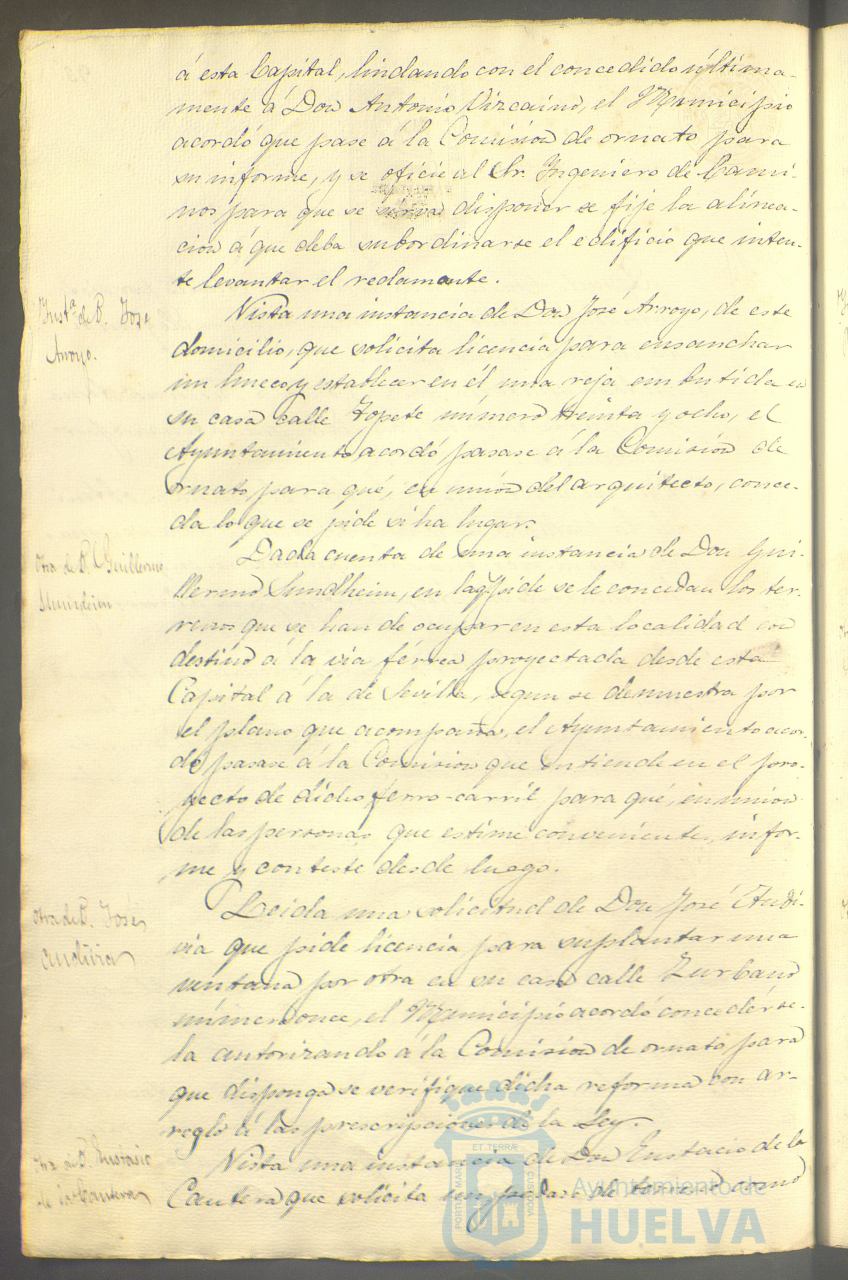 á esta Capital, lindando con el concedido última-
mente á Don Antonio Vizcaino, el Municipio
acordó que pase á la Comision de ornato para
su informe, y se oficie al Sr. Ingeniero de Cami-
nos para que se sirva disponer se fije la alinea-
cion á que deba subordinarse el edificio que inten-
te levantar el reclamante.
Inst.ª de D. José
Arroyo.
Vista una instancia de Don José Arroyo, de este
domicilio, que solicita licencia para ensanchar
un hueco y establecer en él una reja embutida en
su casa calle Topete número treinta y ocho, el
Ayuntamiento acordó pasase á la Comision de
ornato para qué, en union del arquitecto, conce-
da lo que se pide si ha lugar.
Otra de D. Guillermo
Sundheim
Dada cuenta de una instancia de Don Gui-
llermo Sundheim, en la q. pide se le concedan los ter-
renos que se han de ocupar en esta localidad con
destino á la via férrea proyectada desde esta
Capital á la de Sevilla, segun se demuestra por
el plano que acompaña, el Ayuntamiento acor-
dó pasase á la Comision que entiende en el pro-
yecto de dicho ferro-carril para qué, en union
de las personas que estime conveniente, infor-
me y conteste desde luego.
Otra de D. José
Andivia
Leida una solicitud de Don José Andi-
via que pide licencia para suplantar una
ventana por otra en su casa calle Zurbano
número once, el Municipio acordó concedérse-
la autorizando á la Comision de ornato para
que disponga se verifique dicha reforma con ar-
reglo á las prescripciones de la Ley.
Otra de D. Eustasio
de la Cantera
Vista una instancia de Don Eustacio de la
Cantera que solicita un pedazo de terreno como
PORTUS MARIS ET TERRÆ CUSTODIA
Ayuntamiento de
HUELVA